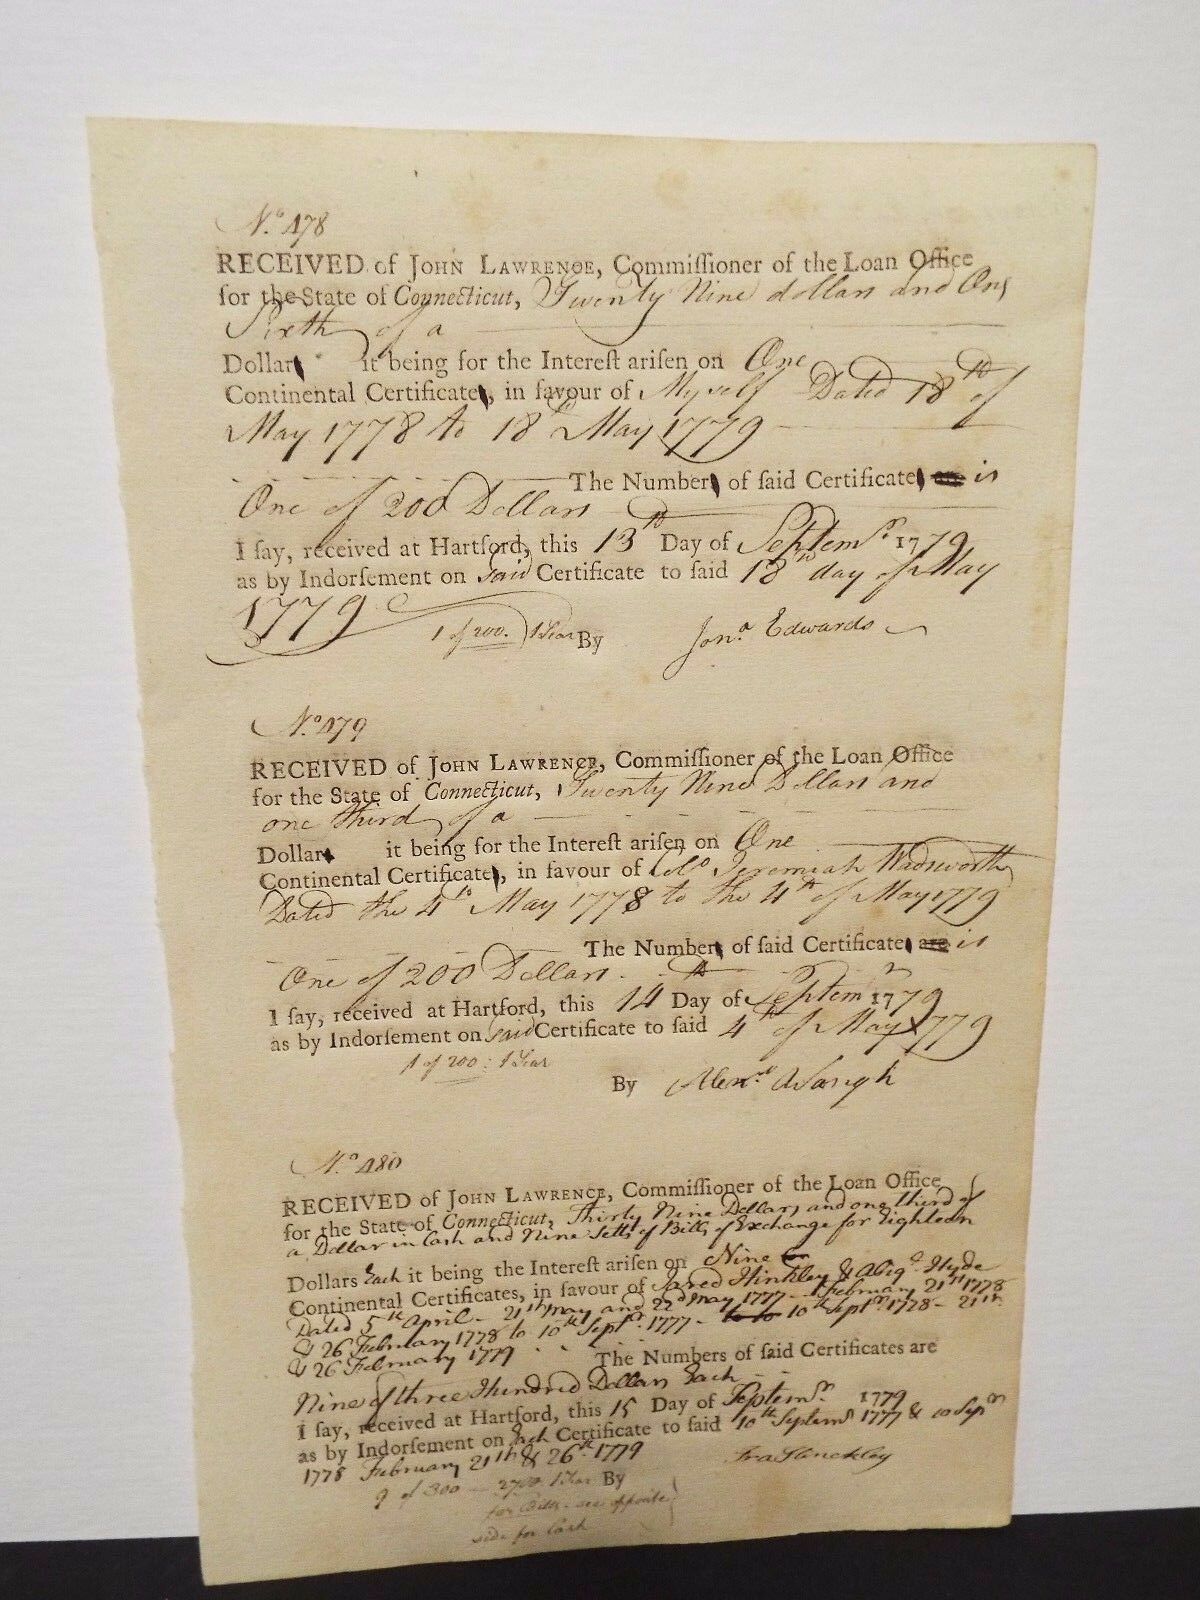 No. 478
RECEIVED of JOHN LAWRENCE, Commiſſioner of the Loan Office
for the State of Connecticut, Twenty Nine dollars and One
Sixth of a
Dollar it being for the Intereſt ariſen on One
Continental Certificate, in favour of Myself Dated 18th of
May 1778 to 18th May 1779
The Number of ſaid Certificate are is
One of 200 Dollars
I ſay, received at Hartford, this 13th Day of Septemr 1779
as by Indorſement on said Certificate to ſaid 18th day of May
1779
1 of 200. 1 Year By Jona Edwards
No. 479
RECEIVED of JOHN LAWRENCE, Commiſſioner of the Loan Office
for the State of Connecticut, Twenty Nine Dollars and
one third of a
Dollar it being for the Intereſt ariſen on One
Continental Certificate, in favour of Colo Jeremiah Wadsworth
Dated the 4th May 1778 to the 4th of May 1779
The Number of ſaid Certificate are is
One of 200 Dollars
I ſay, received at Hartford, this 14th Day of Septemr 1779
as by Indorſement on said Certificate to ſaid 4th of May 1779
1 of 200: 1 Year
By Alexr Waugh
No. 480
RECEIVED of JOHN LAWRENCE, Commiſſioner of the Loan Office
for the State of Connecticut, Thirty Nine Dollars and one third of
a Dollar in Cash and Nine Setts of Bills of Exchange for Eighteen
Dollars Each it being the Intereſt ariſen on Nine
Continental Certificates, in favour of Jared Hinkley & Abigl Hyde
Dated 5th April - 21th May and 22d May 1777 - February 21th 1778
& 26 February 1778 to 10th Septr 1777 - to to 10th Septr 1778 - 21th
& 26 February 1779
The Numbers of ſaid Certificates are
Nine of three Hundred Dollars Each
I ſay, received at Hartford, this 15 Day of Septemr 1779
as by Indorſement on Each Certificate to ſaid 10th Septemr 1777 & 10 Sepr
1778 February 21th & 26th 1779
9 of 300 - 2700 1 Year By Ira Hinckley
for Bills - see opposite
side for Cash